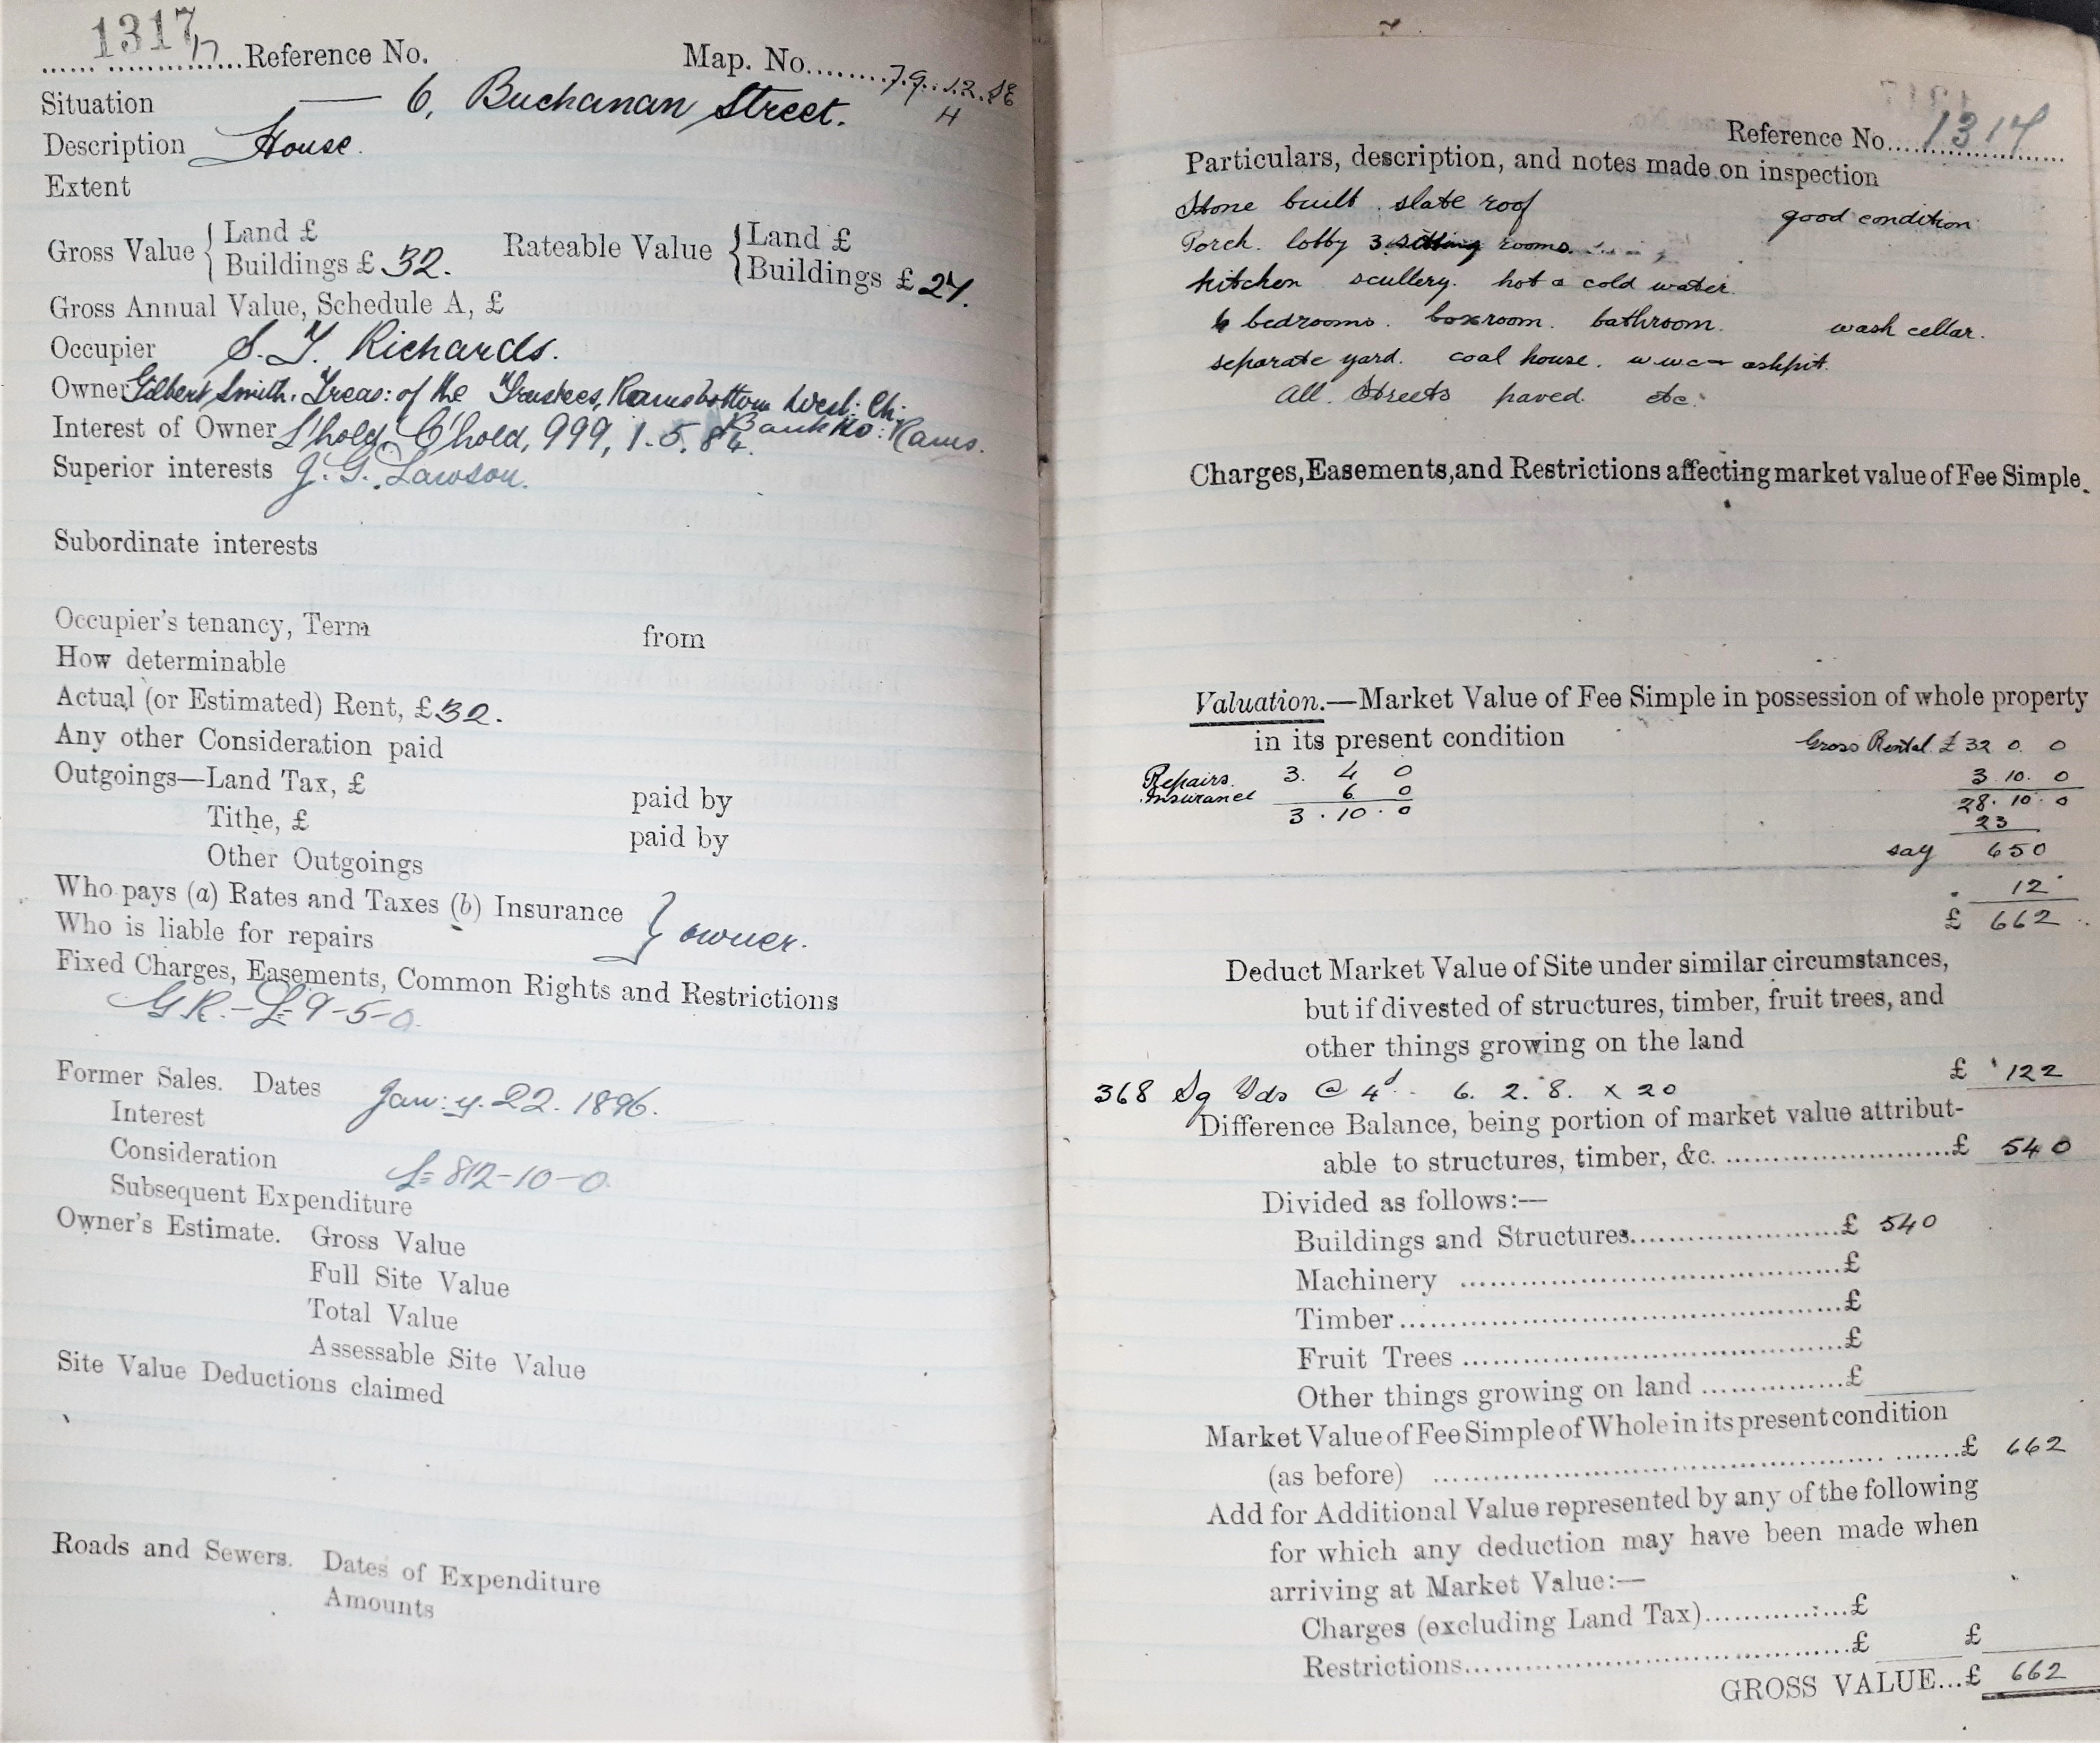 1317
Reference No. Map. No. 79.12.SE
H
Situation — 6, Buchanan Street.
Description House.
Extent
Gross Value { Land £
Buildings £ 32.
Rateable Value { Land £
Buildings £ 27.
Gross Annual Value, Schedule A, £
Occupier S. Y. Richards.
Owner Gilbert Smith. Treas: of the Trustees, Ramsbottom Wesl: Ch:
Bank Ho: Rams.
Interest of Owner L'hold, C'hold, 999, 1.5.84.
Superior interests J. G. Lawson.
Subordinate interests
Occupier's tenancy, Term from
How determinable
Actual (or Estimated) Rent, £ 32.
Any other Consideration paid
Outgoings—Land Tax, £ paid by
Tithe, £ paid by
Other Outgoings
Who pays (a) Rates and Taxes (b) Insurance
Who is liable for repairs } owner.
Fixed Charges, Easements, Common Rights and Restrictions
G.R. - £9-5-0.
Former Sales. Dates Jan:y. 22. 1896.
Interest
Consideration £812-10-0.
Subsequent Expenditure
Owner's Estimate. Gross Value
Full Site Value
Total Value
Assessable Site Value
Site Value Deductions claimed
Roads and Sewers. Dates of Expenditure
Amounts
Reference No. 1317
Particulars, description, and notes made on inspection
Stone built. slate roof good condition
Porch. lobby 3 sitting rooms.
kitchen scullery. hot & cold water.
6 bedrooms. boxroom. bathroom. wash cellar.
separate yard. coal house. w.w.c & ashpit.
All Streets paved. etc.
Charges, Easements, and Restrictions affecting market value of Fee Simple.
Valuation.—Market Value of Fee Simple in possession of whole property
in its present condition Gross Rental £ 32 0. 0
Repairs. 3. 4 0 3 10. 0
Insurance 6. 0 28. 10. 0
3. 10. 0 23
say 650
12
£ 662
Deduct Market Value of Site under similar circumstances,
but if divested of structures, timber, fruit trees, and
other things growing on the land
368 Sq Yds @ 4d 6. 2. 8. x 20 £ 122
Difference Balance, being portion of market value attribut-
able to structures, timber, &c. £ 540
Divided as follows:—
Buildings and Structures £ 540
Machinery £
Timber £
Fruit Trees £
Other things growing on land £
Market Value of Fee Simple of Whole in its present condition
(as before) £ 662
Add for Additional Value represented by any of the following
for which any deduction may have been made when
arriving at Market Value:—
Charges (excluding Land Tax) £
Restrictions £ £
GROSS VALUE...£ 662